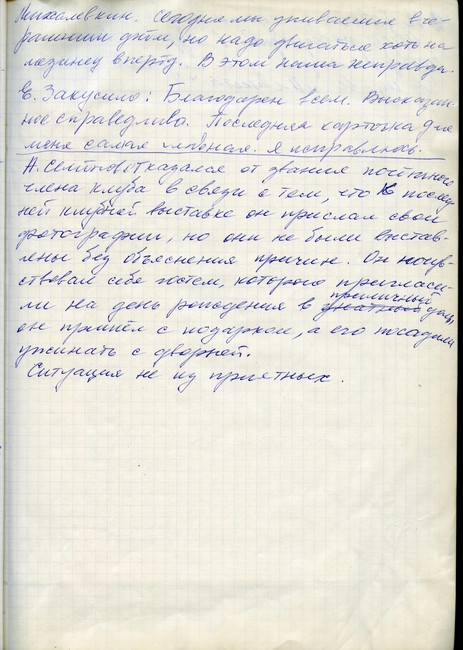 Михалевкин. Сегодня мы упиваемся вче-
рашним днём, но надо двигаться хоть на
мезинец вперёд. В этом наша неправда.
Е. Закусило: Благодарен всем. Высказан-
ное справедливо. Последняя карточка для
меня самая главная. Я исправлюсь.
А. отказался от звания почётного
члена клуба в связи с тем, что к послед-
ней клубной выставке он прислал свои
фотографии, но они не были выстав-
лены без объяснения причин. Он почув-
ствовал себя гостем, которого пригласи-
ли на день рождения в приличный дом,
он пришёл с подарком, а его посадили
ужинать с дворней.
Ситуация не из приятных.